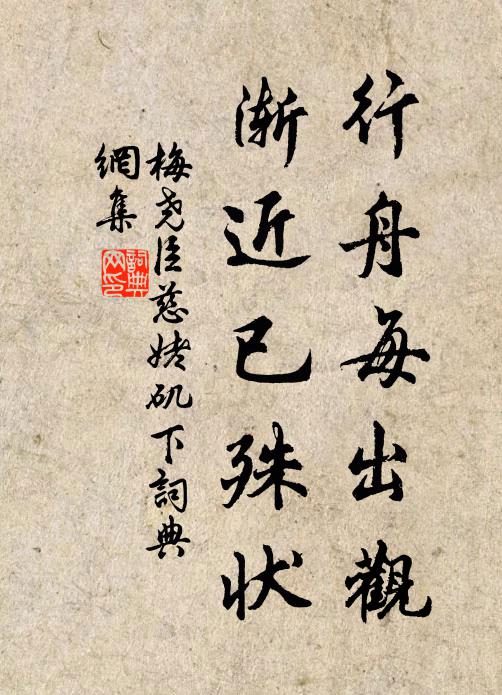 行舟每出觀
渐近已殊状
梅尧臣慈姥矶下詞典
網集
詞典
网印